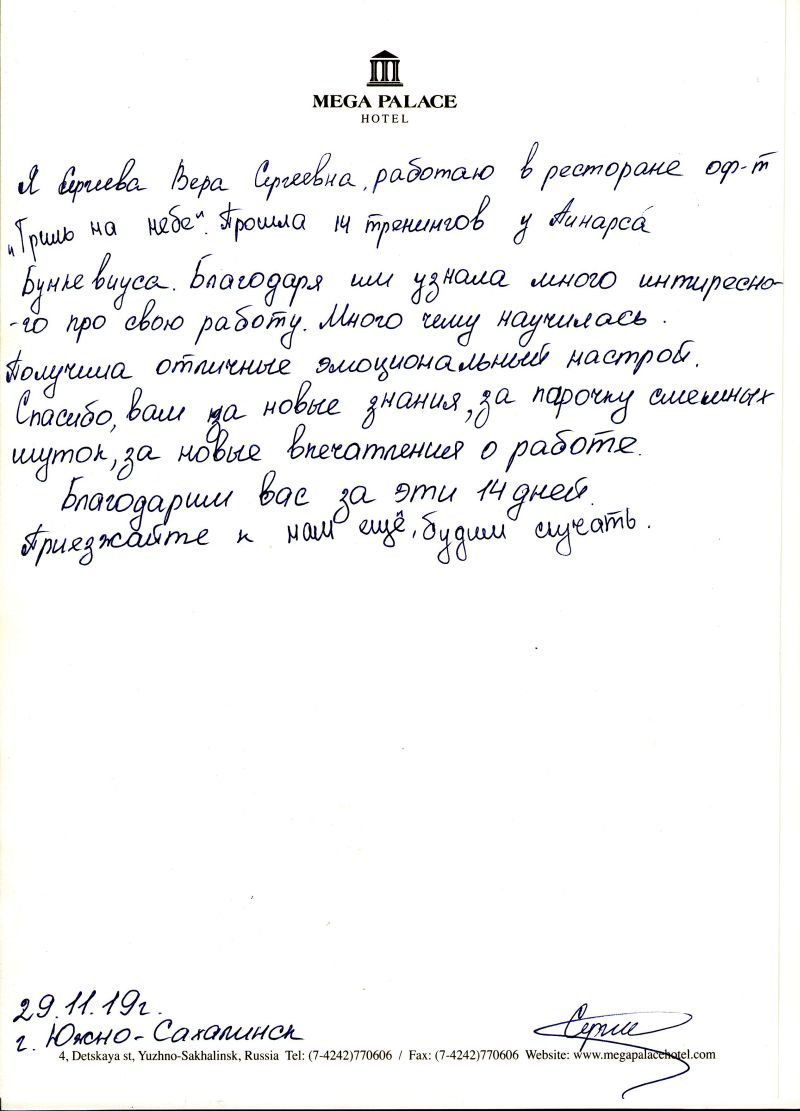 MEGA PALACE
HOTEL
Я Сергиева Вера Сергеевна, работаю в ресторане оф-т
„Гриль на небе“. Прошла 14 тренингов у Аинарса
Бункевиуса. Благодаря им узнала много интиресно-
-го про свою работу. Много чему научилась.
Получила отличные эмоциональный настрой.
Спасибо, вам за новые знания, за парочку смешных
шуток, за новые впечатления о работе.
Благодарим вас за эти 14 дней.
Приезжайте к нам ещё, будим скучать.
29.11.19г.
г. Южно-Сахалинск
4, Detskaya st, Yuzhno-Sakhalinsk, Russia Tel: (7-4242)770606 / Fax: (7-4242)770606 Website: www.megapalacehotel.com